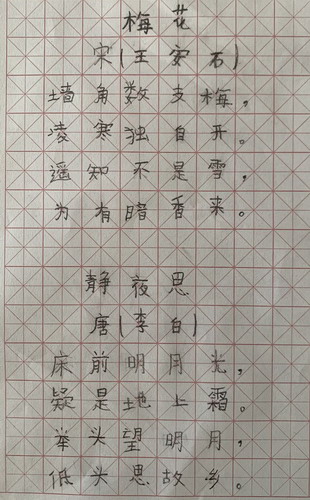 梅花
宋(王安石)
墙角数支梅，
凌寒独自开。
遥知不是雪，
为有暗香来。
静夜思
唐(李白)
床前明月光，
疑是地上霜。
举头望明月，
低头思故乡。